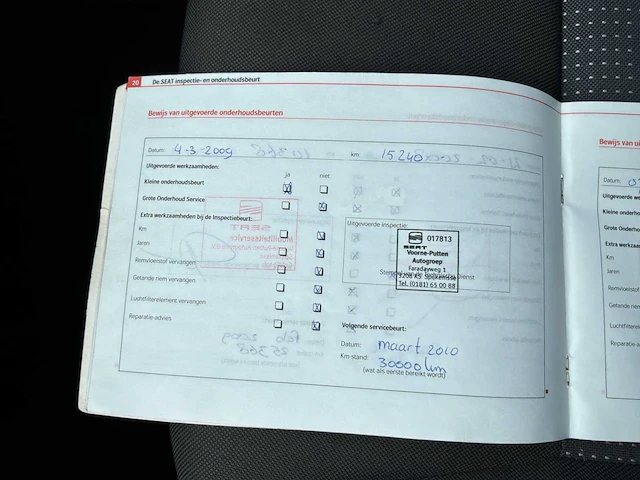 20 De SEAT inspectie- en onderhoudsbeurt
Bewijs van uitgevoerde onderhoudsbeurten
Datum: 4-3-2009 km 15240
Uitgevoerde werkzaamheden:
ja niet
Kleine onderhoudsbeurt
Grote Onderhoud Service
Extra werkzaamheden bij de Inspectiebeurt:
Km
Jaren
Remvloeistof vervangen
Getande riem vervangen
Luchtfilterelement vervangen
Reparatie-advies
Uitgevoerde inspectie:
SEAT 017813
Voorne-Putten
Autogroep
Faradayweg 1
3208 KS Spijkenisse
Tel. (0181) 65 00 88
Volgende servicebeurt:
Datum: maart 2010
Km-stand: 30000 km
(wat als eerste bereikt wordt)
Bewijs van ui
Datum:
Uitgevoerde
Kleine onder
Grote Onder
Extra werkza
Km
Jaren
Remvloeistof
Getande rien
Luchtfiltere
Reparatie-a